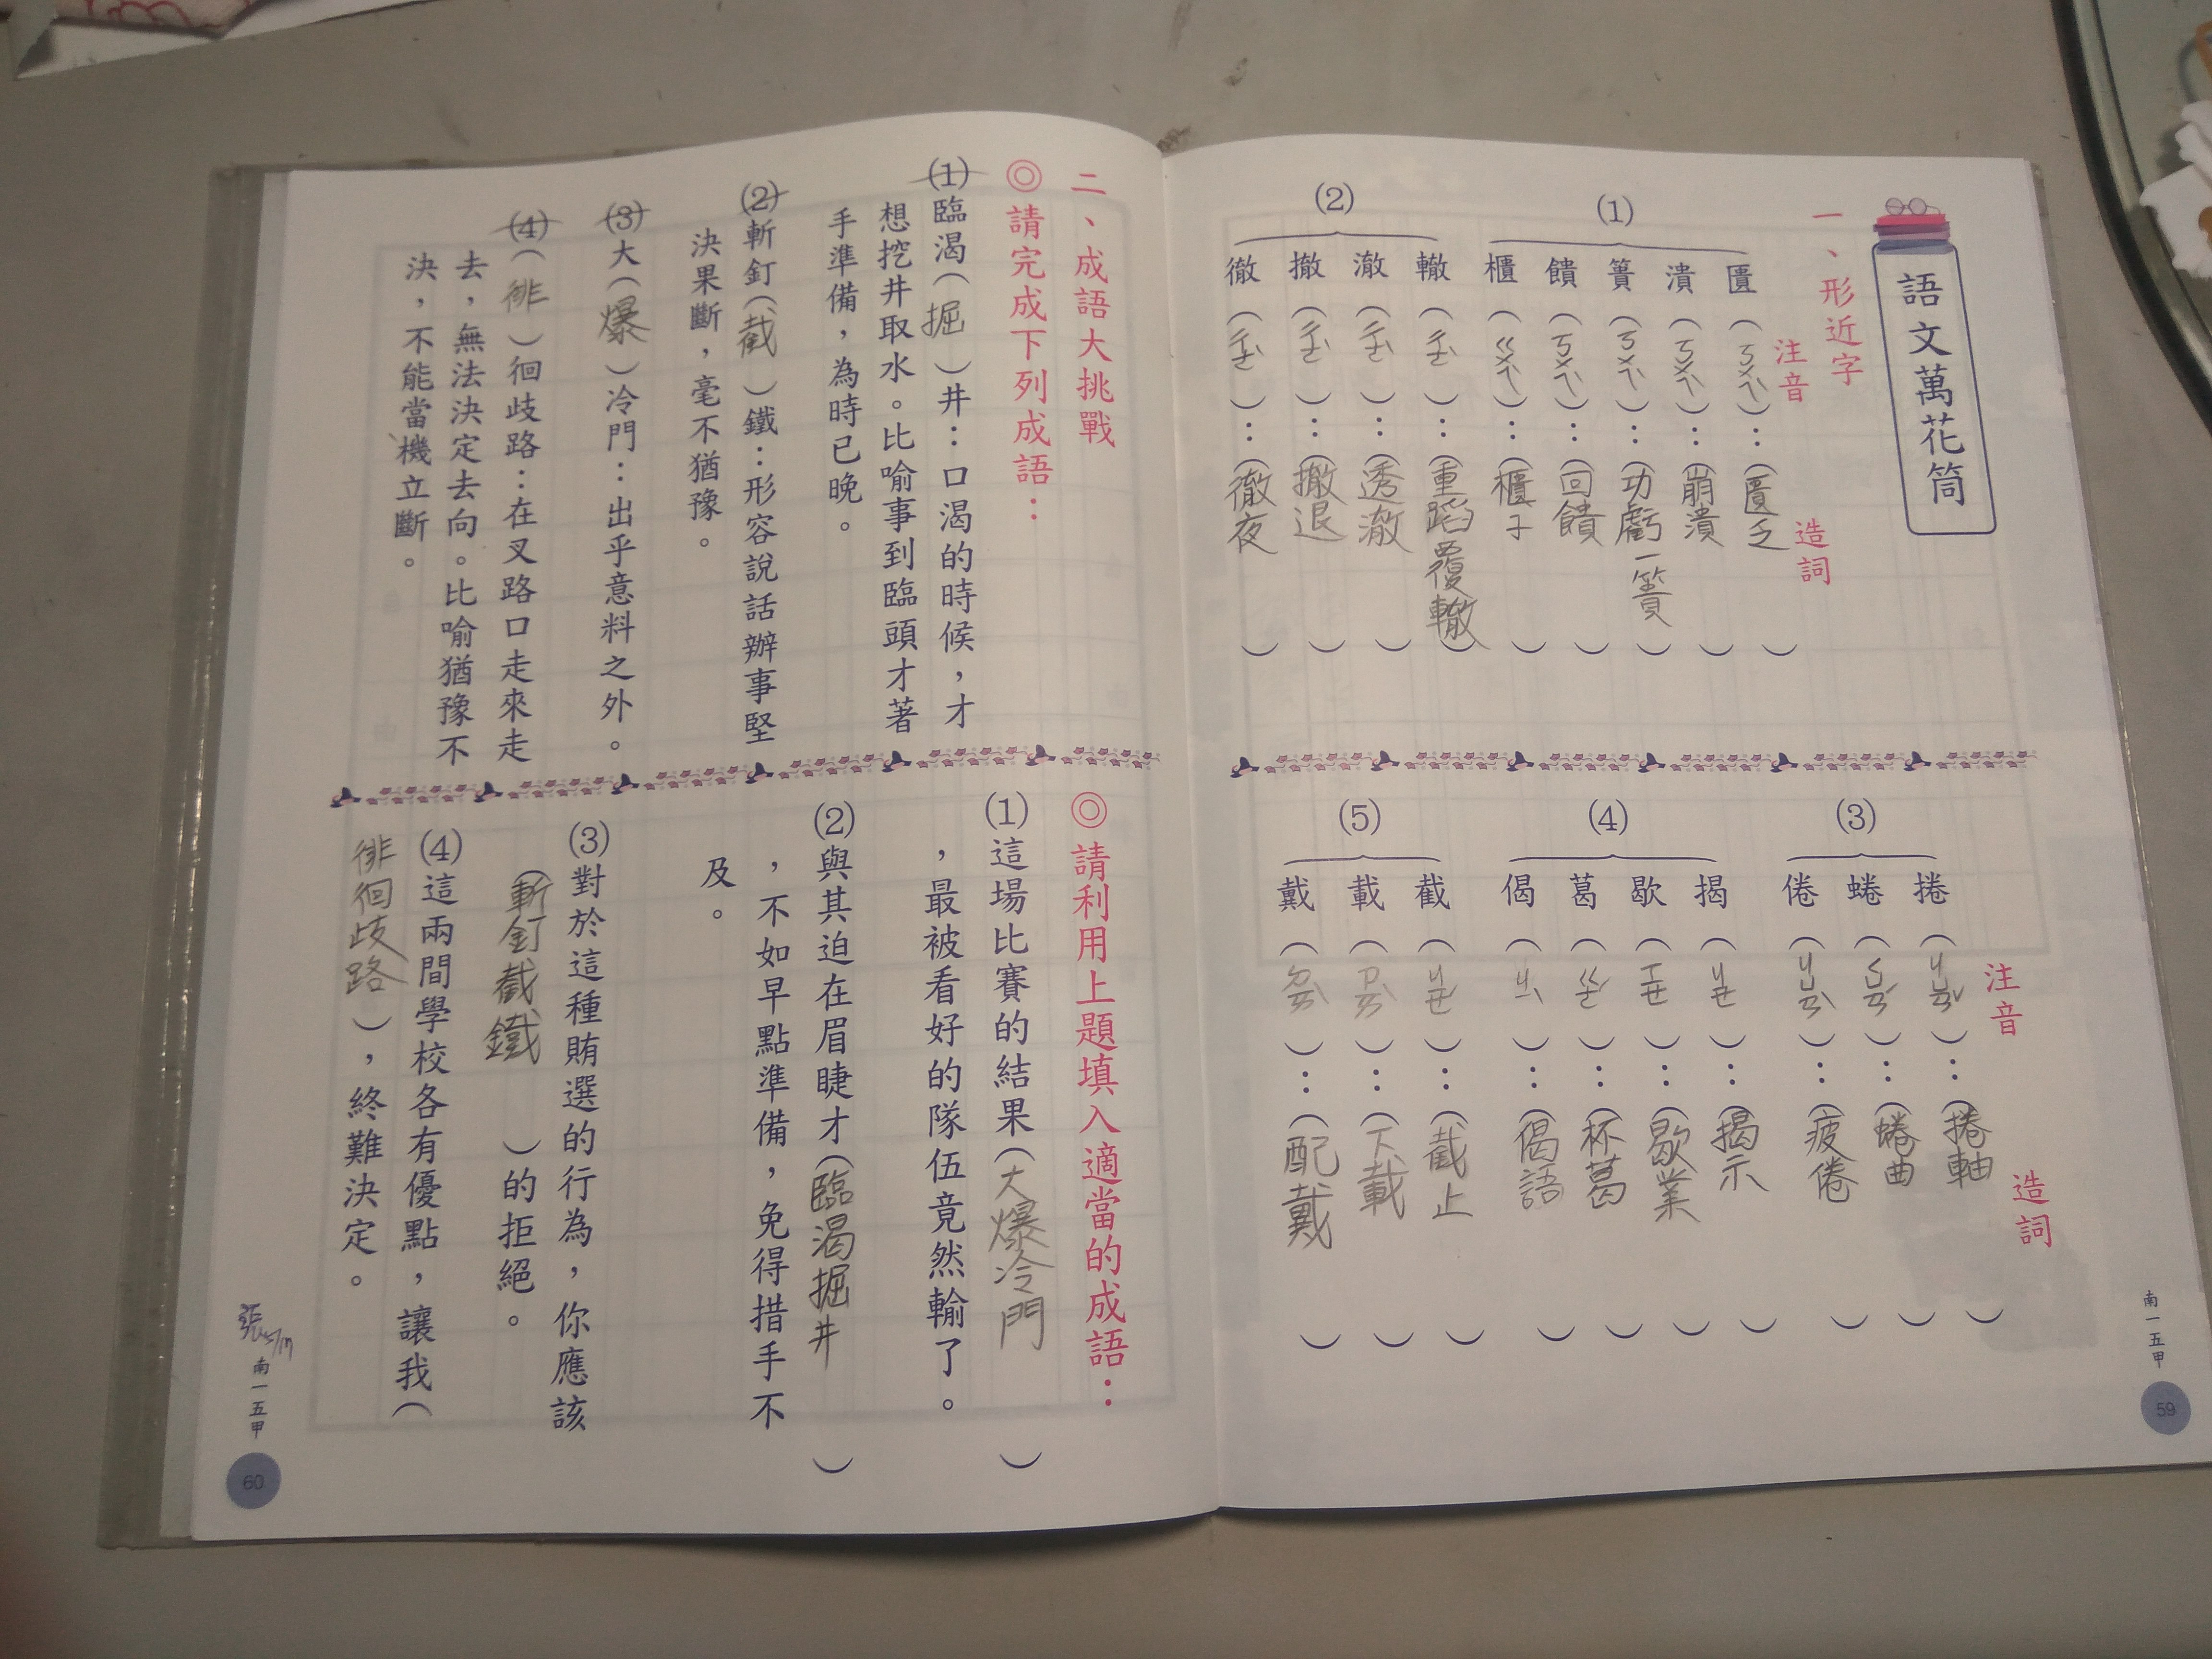 語文萬花筒
一、形近字
注音
造詞
(1)
匱(ㄎㄨㄟˋ):(匱乏)
潰(ㄎㄨㄟˋ):(崩潰)
簣(ㄎㄨㄟˋ):(功虧一簣)
饋(ㄎㄨㄟˋ):(回饋)
櫃(ㄍㄨㄟˋ):(櫃子)
(2)
轍(ㄔㄜˋ):(重蹈覆轍)
澈(ㄔㄜˋ):(透澈)
撤(ㄔㄜˋ):(撤退)
徹(ㄔㄜˋ):(徹夜)
注音
造詞
(3)
捲(ㄐㄩㄢˇ):(捲軸)
蜷(ㄑㄩㄢˊ):(蜷曲)
倦(ㄐㄩㄢˋ):(疲倦)
(4)
揭(ㄐㄧㄝ):(揭示)
歇(ㄒㄧㄝ):(歇業)
葛(ㄍㄜˊ):(杯葛)
偈(ㄐㄧˋ):(偈語)
(5)
截(ㄐㄧㄝˊ):(截止)
載(ㄗㄞˋ):(下載)
戴(ㄉㄞˋ):(配戴)
南一五甲
59
二、成語大挑戰
◎請完成下列成語:
(1)臨渴(掘)井:口渴的時候,才
想挖井取水。比喻事到臨頭才著
手準備,為時已晚。
(2)斬釘(截)鐵:形容說話辦事堅
決果斷,毫不猶豫。
(3)大(爆)冷門:出乎意料之外。
(4)(徘)徊歧路:在叉路口走來走
去,無法決定去向。比喻猶豫不
決,不能當機立斷。
◎請利用上題填入適當的成語:
(1)這場比賽的結果(大爆冷門)
,最被看好的隊伍竟然輸了。
(2)與其迫在眉睫才(臨渴掘井)
,不如早點準備,免得措手不
及。
(3)對於這種賄選的行為,你應該
(斬釘截鐵)的拒絕。
(4)這兩間學校各有優點,讓我(
徘徊歧路),終難決定。
張5/17
南一五甲
60